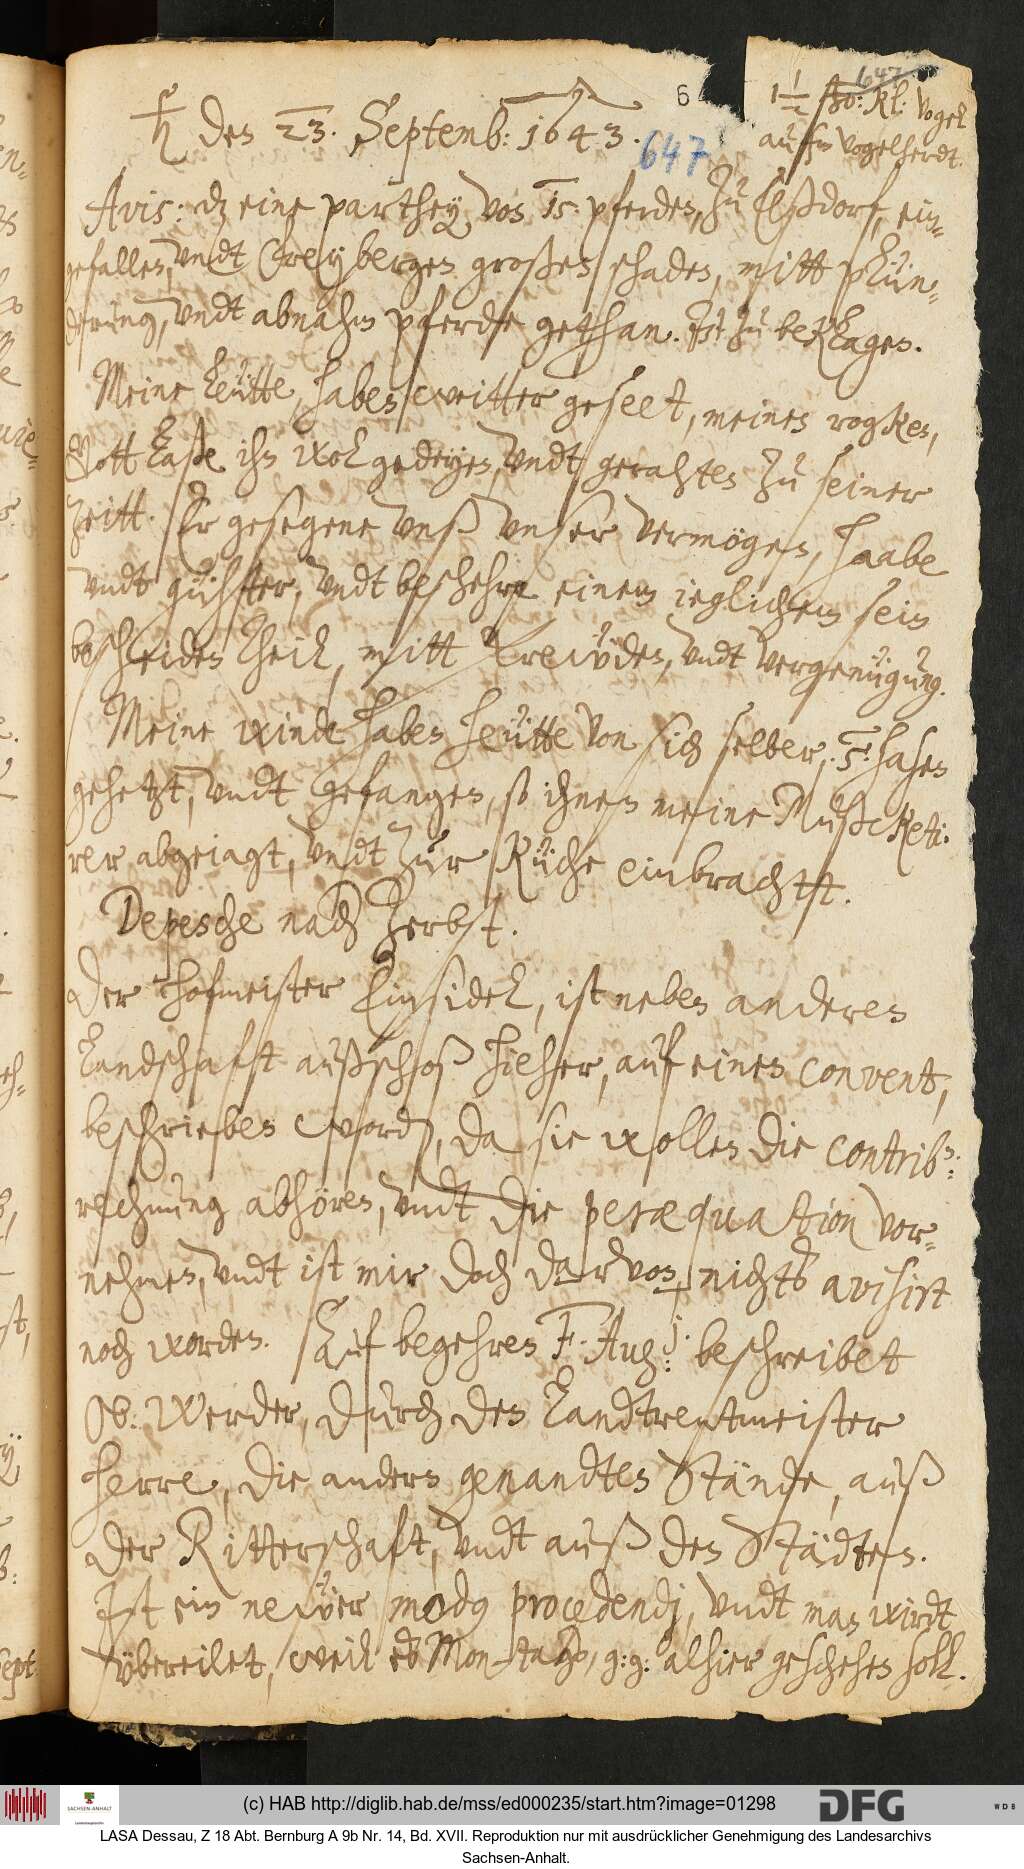 647
1½ ßo: Kl: Vogel
aufm Vogelherdt.
♄ den 23. Septemb: 1643.
647
Avis: dz eine parthey von 15. pferden, zu Elßdorf, ein-
gefallen, vndt Freybergen großen schaden, mitt plün-
derung, vndt abnahm pferde gethan. Ist zu beklagen.
Meine leütte, haben weitter geseet, meinen rogken,
Gott laße ihn wol gedeyen, vndt gerahten zu seiner
zeitt. Er gesegene vnß vnser vermögen, haabe
vndt gühter, vndt beschehre einem ieglichem sein
bescheiden theil, mitt frewden, vndt vergenügung.
Meine winde haben heütte von sich selber, 5. hasen
gehetzt, vndt gefangen, so ihnen meine Mußcketi-
rer abgeiagt, vndt zur Küche einbracht.
Depesche nach Zerbst.
Der hofmeister Einsidel, ist neben anderen
Landschaft außschoß hieher, auf einen convent,
beschrieben worden, da sie wollen die contrib:
rechnung abhören, vndt die peræquation vor-
nehmen, vndt ist mir doch darvon nichts avisirt
noch worden. Auf begehren F. Aug: beschreibet
Ob: Werder, durch den Landtrentmeister
herre, die anders genandten Stände, auß
der Ritterschaft, vndt auß den Städten.
Ist ein newer modus procedendj, vndt man wirdt
übereilet, weil es Montags, g: g: alhier geschehen soll.
(c) HAB http://diglib.hab.de/mss/ed000235/start.htm?image=01298
DFG
SACHSEN-ANHALT
WDB
LASA Dessau, Z 18 Abt. Bernburg A 9b Nr. 14, Bd. XVII. Reproduktion nur mit ausdrücklicher Genehmigung des Landesarchivs
Sachsen-Anhalt.